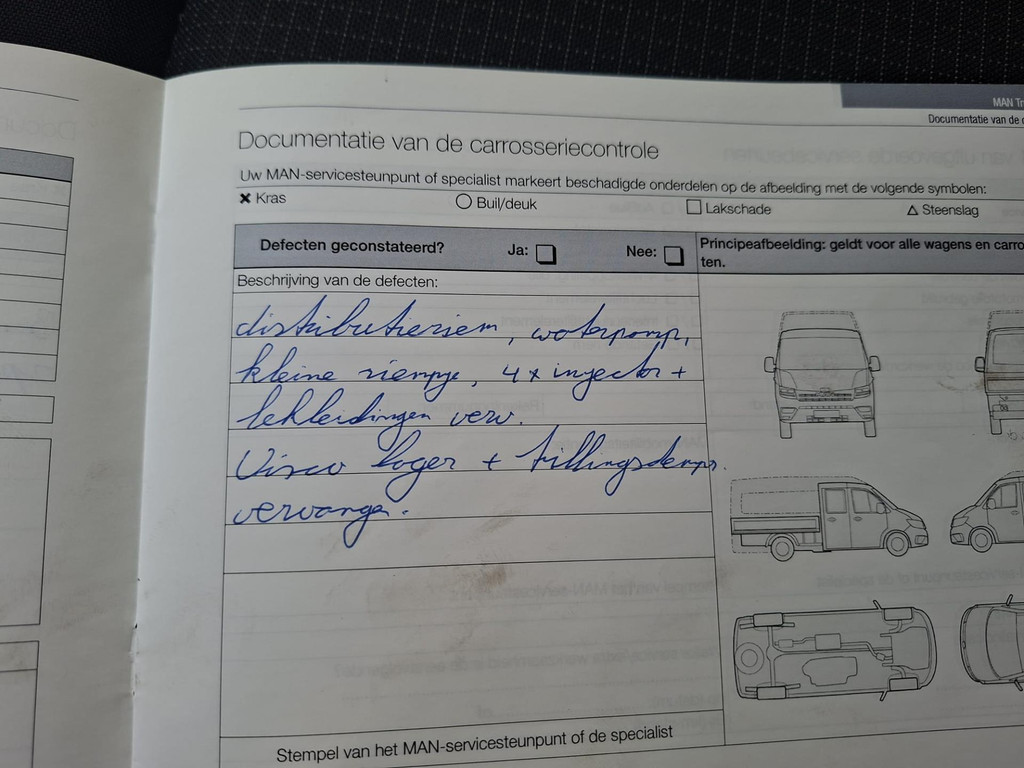 MAN Tr
Documentatie van de c
Documentatie van de carrosseriecontrole
Uw MAN-servicesteunpunt of specialist markeert beschadigde onderdelen op de afbeelding met de volgende symbolen:
Kras
Buil/deuk
Lakschade
Steenslag
Defecten geconstateerd? Ja: Nee:
Principeafbeelding: geldt voor alle wagens en carro
ten.
Beschrijving van de defecten:
distributieriem, waterpomp,
kleine riempje, 4x injector +
lekleidingen verv.
Visco lager + trillingsdemp.
vervangen.
Stempel van het MAN-servicesteunpunt of de specialist